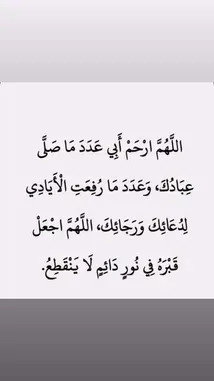 اللَّهُمَّ ارْحَمْ أَبِي عَدَدَ مَا صَلَّى
عِبَادُكَ، وَعَدَدَ مَا رُفِعَتِ الْأَيَادِي
لِدُعَائِكَ وَرَجَائِكَ، اللَّهُمَّ اجْعَلْ
قَبْرَهُ فِي نُورٍ دَائِمٍ لَا يَنْقَطِعُ.